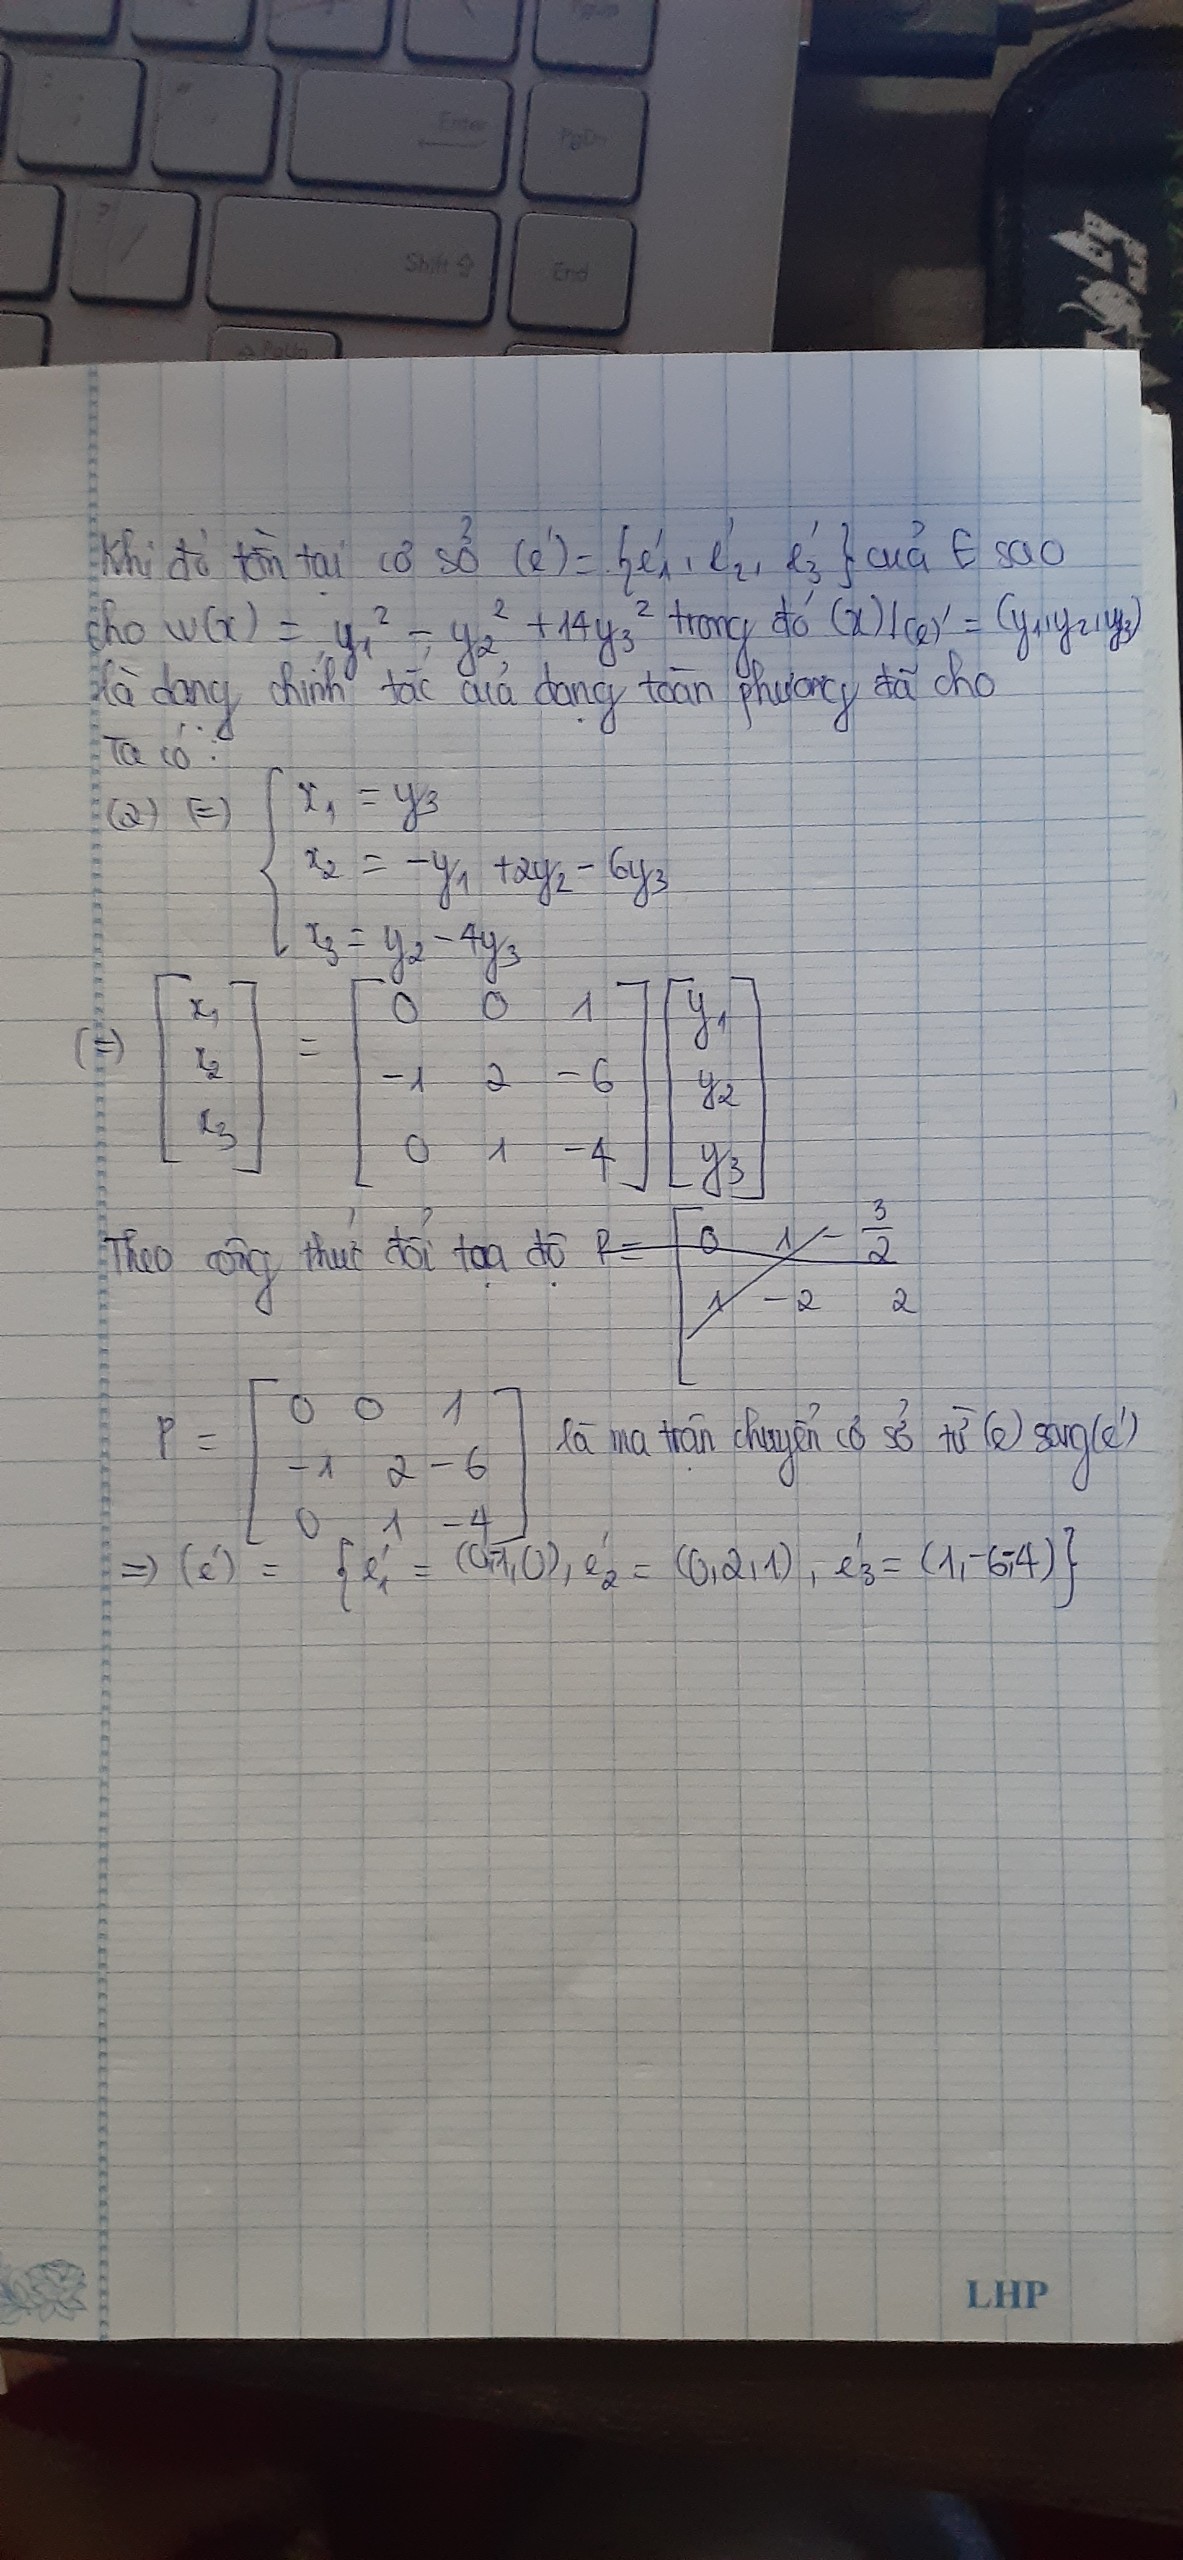 Enter
PgDn
Shift ⇧
End
PgUp
Khi đó tồn tại cơ sở (e') = {e'₁, e'₂, e'₃} của E sao
cho w(x) = y₁² - y₂² + 14y₃² trong đó (x)/(e)' = (y₁, y₂, y₃)
là dạng chính tắc của dạng toàn phương đã cho
Ta có:
(2) (=) { x₁ = y₃
x₂ = -y₁ + 2y₂ - 6y₃
x₃ = y₂ - 4y₃
(=) [x₁ x₂ x₃] = [0 0 1; -1 2 -6; 0 1 -4] [y₁ y₂ y₃]
Theo công thức đổi tọa độ P = [0 1 -3/2
1 -2 2
P = [0 0 1; -1 2 -6; 0 1 -4] là ma trận chuyển cơ sở từ (e) sang (e')
=> (e') = {e'₁ = (0,-1,0), e'₂ = (0,2,1), e'₃ = (1,-6,-4)}
LHP